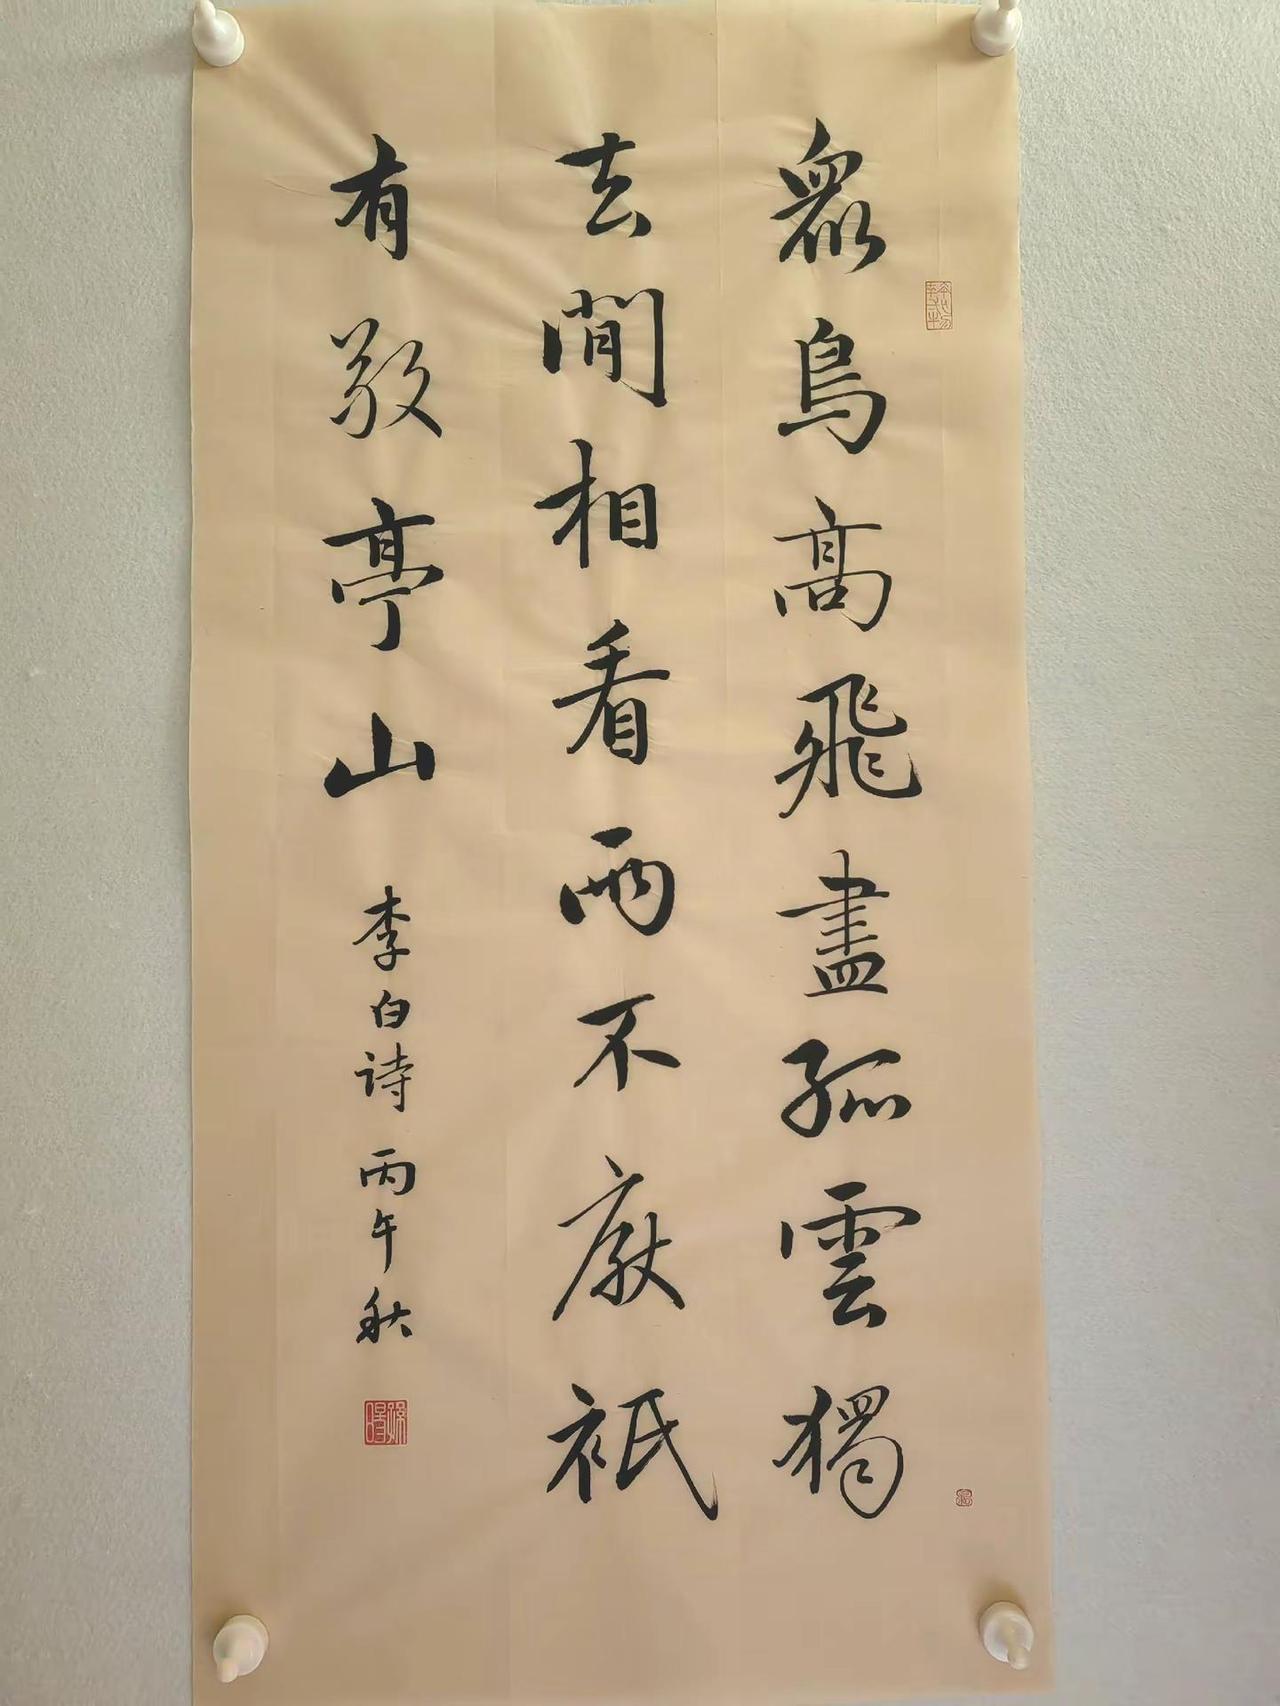 眾鳥高飛盡孤雲獨
去閒相看兩不厭衹
有敬亭山
李白诗 丙午秋